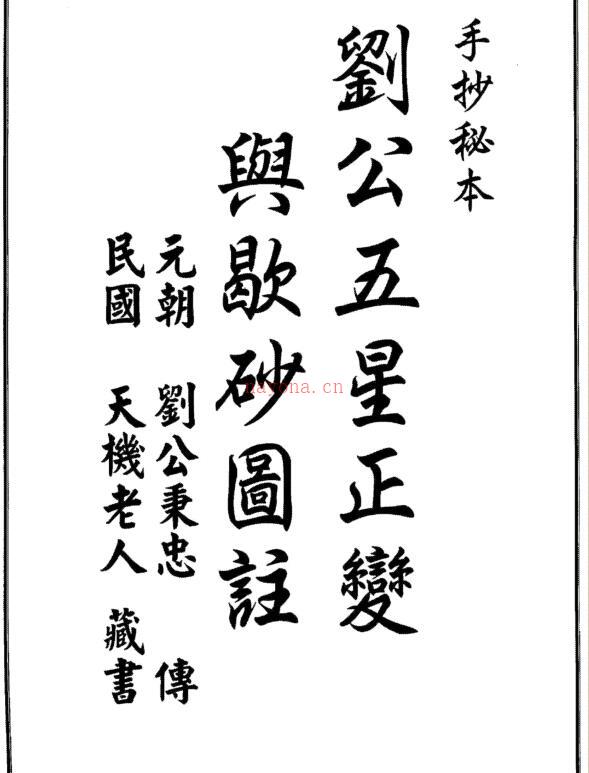 手抄秘本
劉公五星正變
與歇砂圖註
元朝 劉公秉忠 傳
民國 天機老人 藏書
nayona.cn